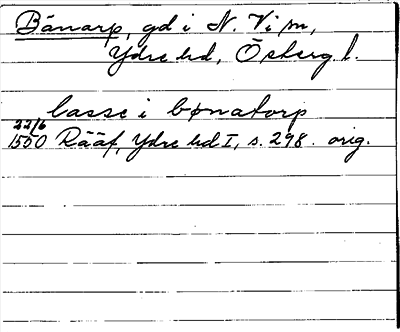 Bänarp, gd i N. Vi sn,
Ydre hd, Östergl.
lasse i bønatorp
22/6
1550 Rääf, Ydre hd I, s. 298. orig.